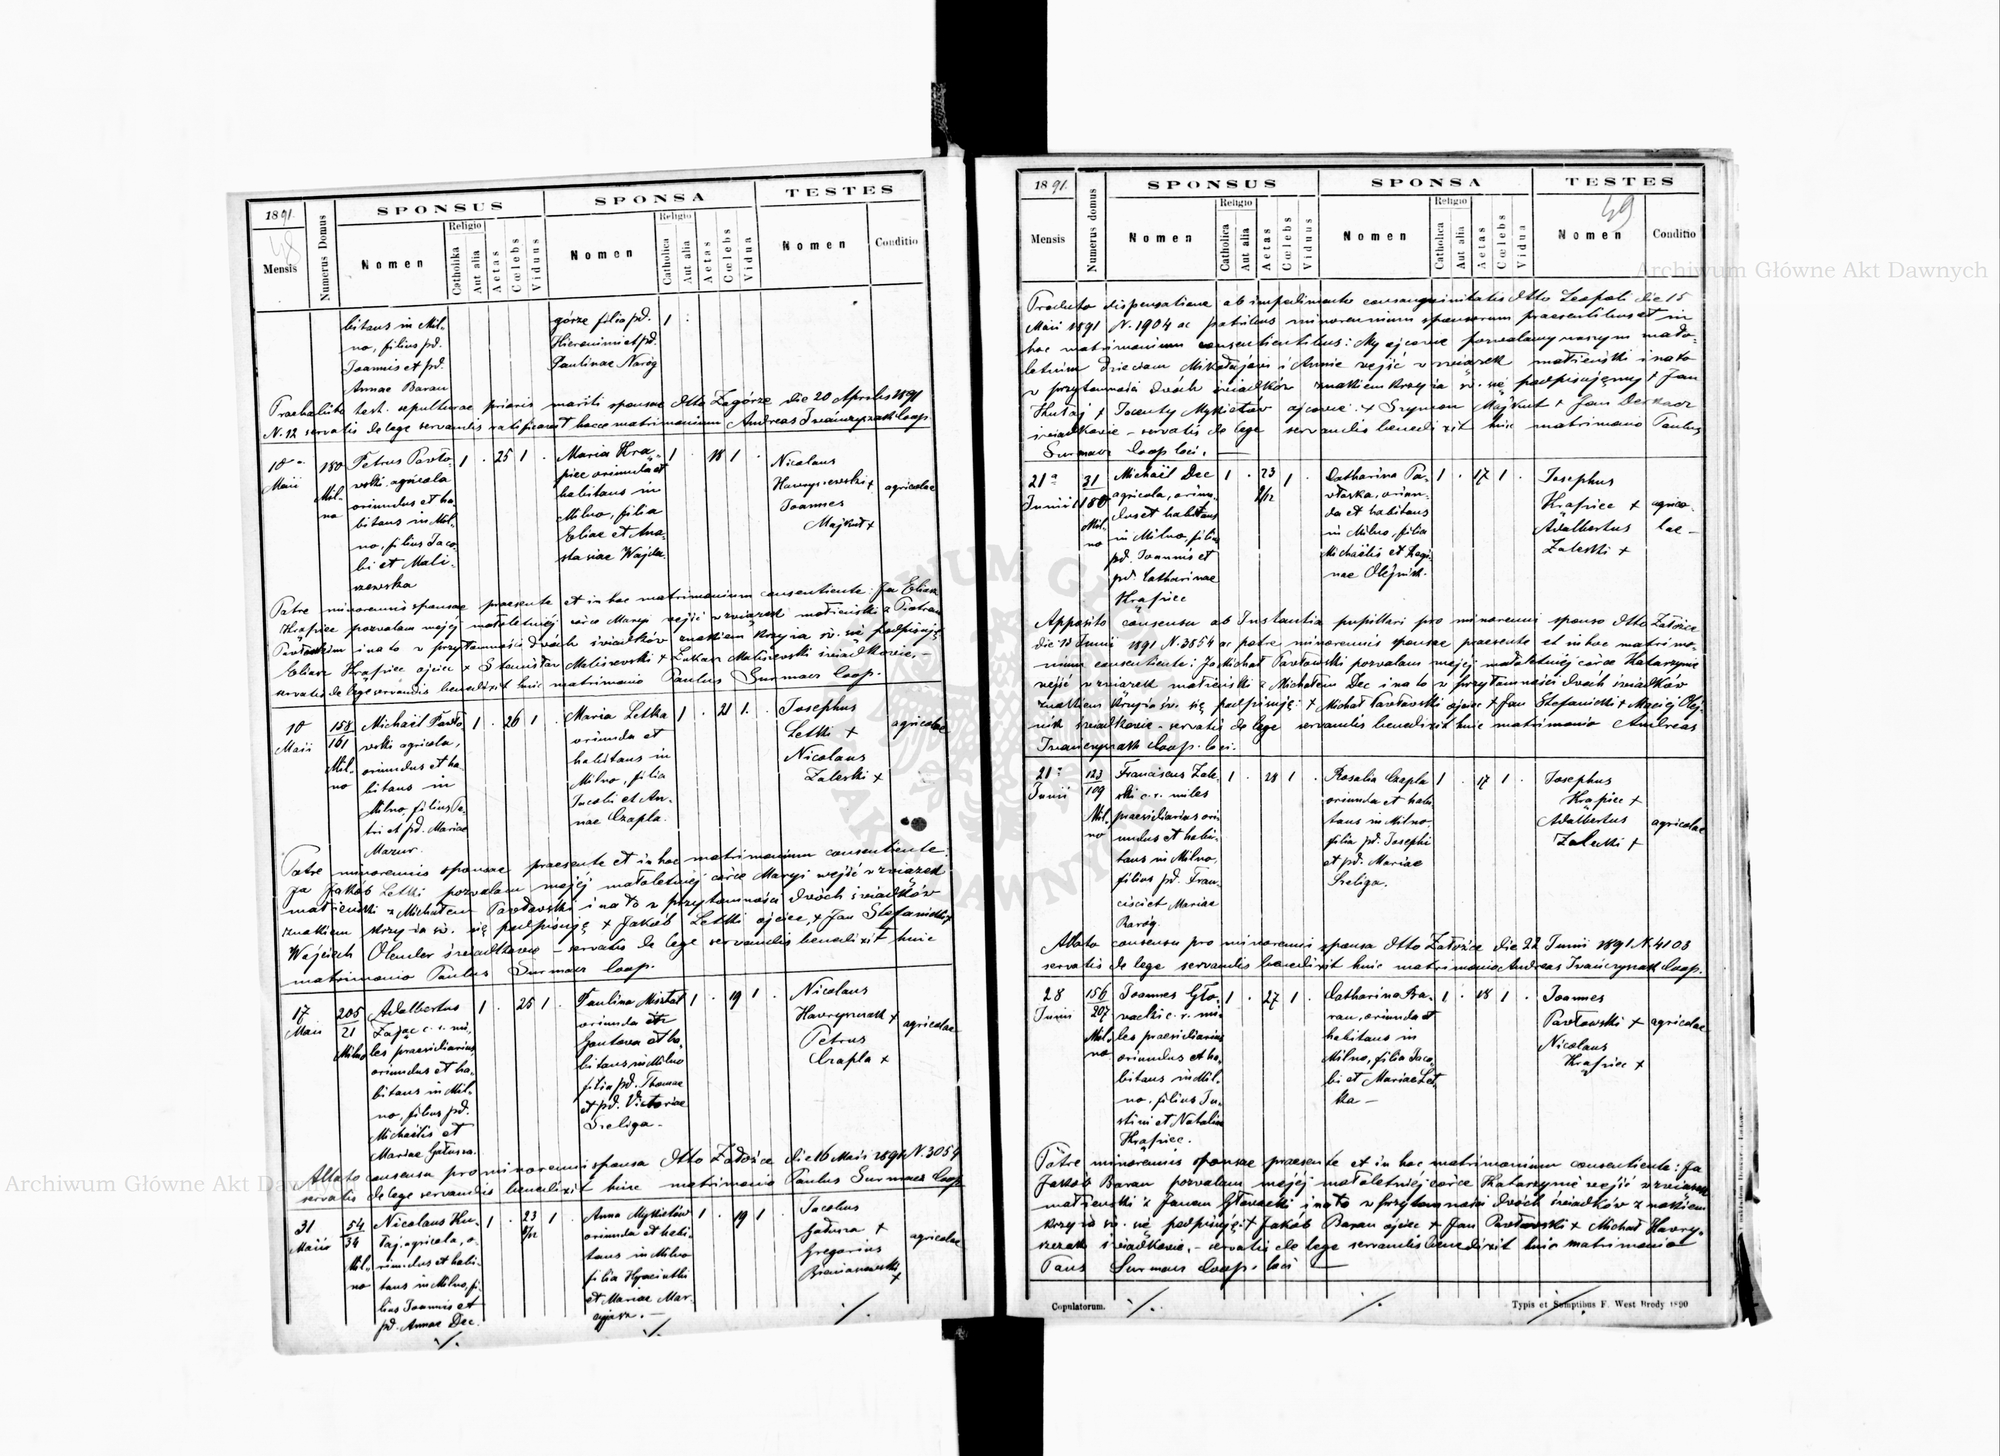 1891.
48
Mensis
Numerus Domus
SPONSUS
Nomen
Religio
Catholika
Aut alia
Aetas
Cœlebs
Viduus
SPONSA
Nomen
Religio
Catholica
Aut alia
Aetas
Cœlebs
Vidua
TESTES
Nomen
Conditio
bitans in Mil-
no, filius pd.
Joannis et pd.
Annae Baran
górze filia pd.
Hieronimi et pd.
Paulinae Naróg
1
Praehabito test. sepulturae prioris mariti sponsae dtto Zagórze die 20 Aprilis 1891
N. 12 servatis de lege servandis ratificavit hocce matrimonium Andreas Iwańczyszak Coop.
10
Maii
180
Mil-
no
Petrus Pawło-
wski agricola
oriundus et ha-
bitans in Mil-
no, filius Jaco-
bi et Mali-
szewska
1 . 25 1 .
Maria Kra-
piec oriunda et
habitans in
Milno, filia
Eliae et Ana-
stasiae Wajda
1 . 18 1 .
Nicolaus
Joannes
Majkut +
agricolae
Patre minorennis sponsae praesente et in hoc matrimonium consentiente: Ja Eliasz
Krąpiec pozwalam mojej małoletniej córce Maryi wejść w związek małżeński z Piotrem
Pawłowskim i na to w przytomności dwóch świadków znakiem krzyża św. się podpisuję
Eliasz Krąpiec ojciec + Stanisław Maliszewski + Łukasz Maliszewski świadkowie. –
servatis de lege servandis benedixit huic matrimonio Paulus Surmacz Coop.
10
Maii
158
161
Mil-
no
Michaël Pawło-
wski agricola,
oriundus et ha-
bitans in
Milno, filius Pe-
tri et pd. Mariae
Mazur.
1 . 26 1 .
Maria Letka
oriunda et
habitans in
Milno, filia
Jacobi et An-
nae Czapla.
1 . 21 1 .
Josephus
Letki +
Nicolaus
Zaleski +
agricolae
Patre minorennis sponsae praesente et in hoc matrimonium consentiente:
Ja Jakób Letki pozwalam mojéj małoletniéj córce Maryi wejść w związek
małżeński z Michałem Pawłowski i na to w przytomności dwóch świadków
znakiem krzyża św. się podpisuję + Jakób Letki ojciec, + Jan Stefanicki +
Wojciech Olender świadkowie – servatis de lege servandis benedixit huic
matrimonio Paulus Surmacz Coop.
17
Maii
205
21
Milno
Adalbertus
Zając c. r. mi-
les praesidiarius,
oriundus et ha-
bitans in Mil-
no, filius pd.
Michaëlis et
Mariae
1 . 25 1 .
Paulina Misztal
oriunda
Gontowa et ha-
bitans in Milno
filia pd. Thomae
et pd. Victoriae
Szeliga –
1 . 19 1 .
Nicolaus
Hawryszczak +
Petrus
Czapla +
agricolae
Allato consensu pro minorenni sponsa dtto Załoźce die 16 Maii 1891 N. 3059
servatis de lege servandis benedixit huic matrimonio Paulus Surmacz Coop
31
Maii
54
34
Mil-
no
Nicolaus Ku-
taj, agricola, o-
riundus et habi-
tans in Milno, fi-
lius Joannis et
pd. Annae Dec.
1 . 23 1
Anna Mykietów
oriunda et habi-
tans in Milno
filia Hyacinthi
et Mariae Mar-
1 . 19 1
Jacobus
+
Gregorius
+
agricolae
1891.
49
Mensis
Numerus domus
SPONSUS
Nomen
Religio
Catholica
Aut alia
Aetas
Cœlebs
Viduus
SPONSA
Nomen
Religio
Catholica
Aut alia
Aetas
Cœlebs
Vidua
TESTES
Nomen
Conditio
Producta dispensatione ab impedimento consanguinitatis dtto Leopoli die 15
Maii 1891 N. 1904 ac patribus minorennium sponsorum praesentibus et in
hoc matrimonium consentientibus: My ojcowie pozwalamy naszym mało-
letnim dzieciom Mikołajowi i Annie wejść w związek małżeński i na to
w przytomności dwóch świadków znakiem krzyża św. się podpisujemy + Jan
Kutaj + Jacenty Mykietów ojcowie. + Szymon Majkut + Jan Derkacz
świadkowie – servatis de lege servandis benedixit huic matrimonio Paulus
Surmacz Coop loci.
21
Junii
31
180
Mil-
no
Michaël Dec
agricola, oriun-
dus et habitans
in Milno, filius
pd. Joannis et
pd. Catharinae
Krąpiec
1 . 23 1 .
Catharina Pa-
włoska, oriun-
da et habitans
in Milno, filia
Michaëlis et Regi-
nae Olejnik.
1 . 17 1 .
Josephus
Krąpiec +
Adalbertus
Zaleski +
agrico-
lae –
Apposito consensu ab Instantia pupillari pro minorenni sponso dtto Załoźce
die 13 Junii 1891 N. 3554 ac patre minorennis sponsae praesente et in hoc matrimo-
nium consentiente: Ja Michał Pawłowski pozwalam mojej małoletniej córce Katarzynie
wejść w związek małżeński z Michałem Dec i na to w przytomności dwóch świadków
znakiem krzyża św. się podpisuję: + Michał Pawłowski ojciec + Jan Stefanicki + Maciej Olej-
nik świadkowie – servatis de lege servandis benedixit huic matrimonio Andreas
Iwańczyszak Coop. loci.
21
Junii
123
109
Mil-
no
Franciscus Zale-
ski c. r. miles
praesidiarius ori-
undus et habi-
tans in Milno,
filius pd. Fran-
cisci et Mariae
Naróg
1 . 28 1 .
Rosalia Czapla
oriunda et habi-
tans in Milno,
filia pd. Josephi
et pd. Mariae
Szeliga.
1 . 17 1 .
Josephus
Krąpiec +
Adalbertus
Zaleski +
agricolae
Allato consensu pro minorenni sponsa dtto Załoźce die 22 Junii 1891 N. 4103
servatis de lege servandis benedixit huic matrimonio Andreas Iwańczyszak Coop.
28
Junii
156
207
Mil-
no
Joannes Gło-
wacki c. r. mi-
les praesidiarius
oriundus et ha-
bitans in Mil-
no, filius Ju-
stini et Nataliae
Krąpiec.
1 . 27 1 .
Catharina Ba-
ran, oriunda et
habitans in
Milno, filia Jaco-
bi et Mariae Let-
ka –
1 . 18 1 .
Joannes
Pawłowski +
Nicolaus
Krąpiec +
agricolae
Patre minorennis sponsae praesente et in hoc matrimonium consentiente: Ja
Jakób Baran pozwalam mojéj małoletniéj córce Katarzynie wejść w związek
małżeński z Janem Głowacki i na to w przytomności dwóch świadków znakiem
krzyża św. się podpisuję: + Jakób Baran ojciec + Jan Pawłowski + Michał Hawry-
szczak świadkowie. – servatis de lege servandis benedixit huic matrimonio
Paus Surmacz Coop. loci
Copulatorum.
Typis et Somptibus F. West Brody 1890
Archiwum Główne Akt Dawnych
Archiwum Główne Akt Dawnych
ARCHIWUM GŁÓWNE AKT DAWNYCH